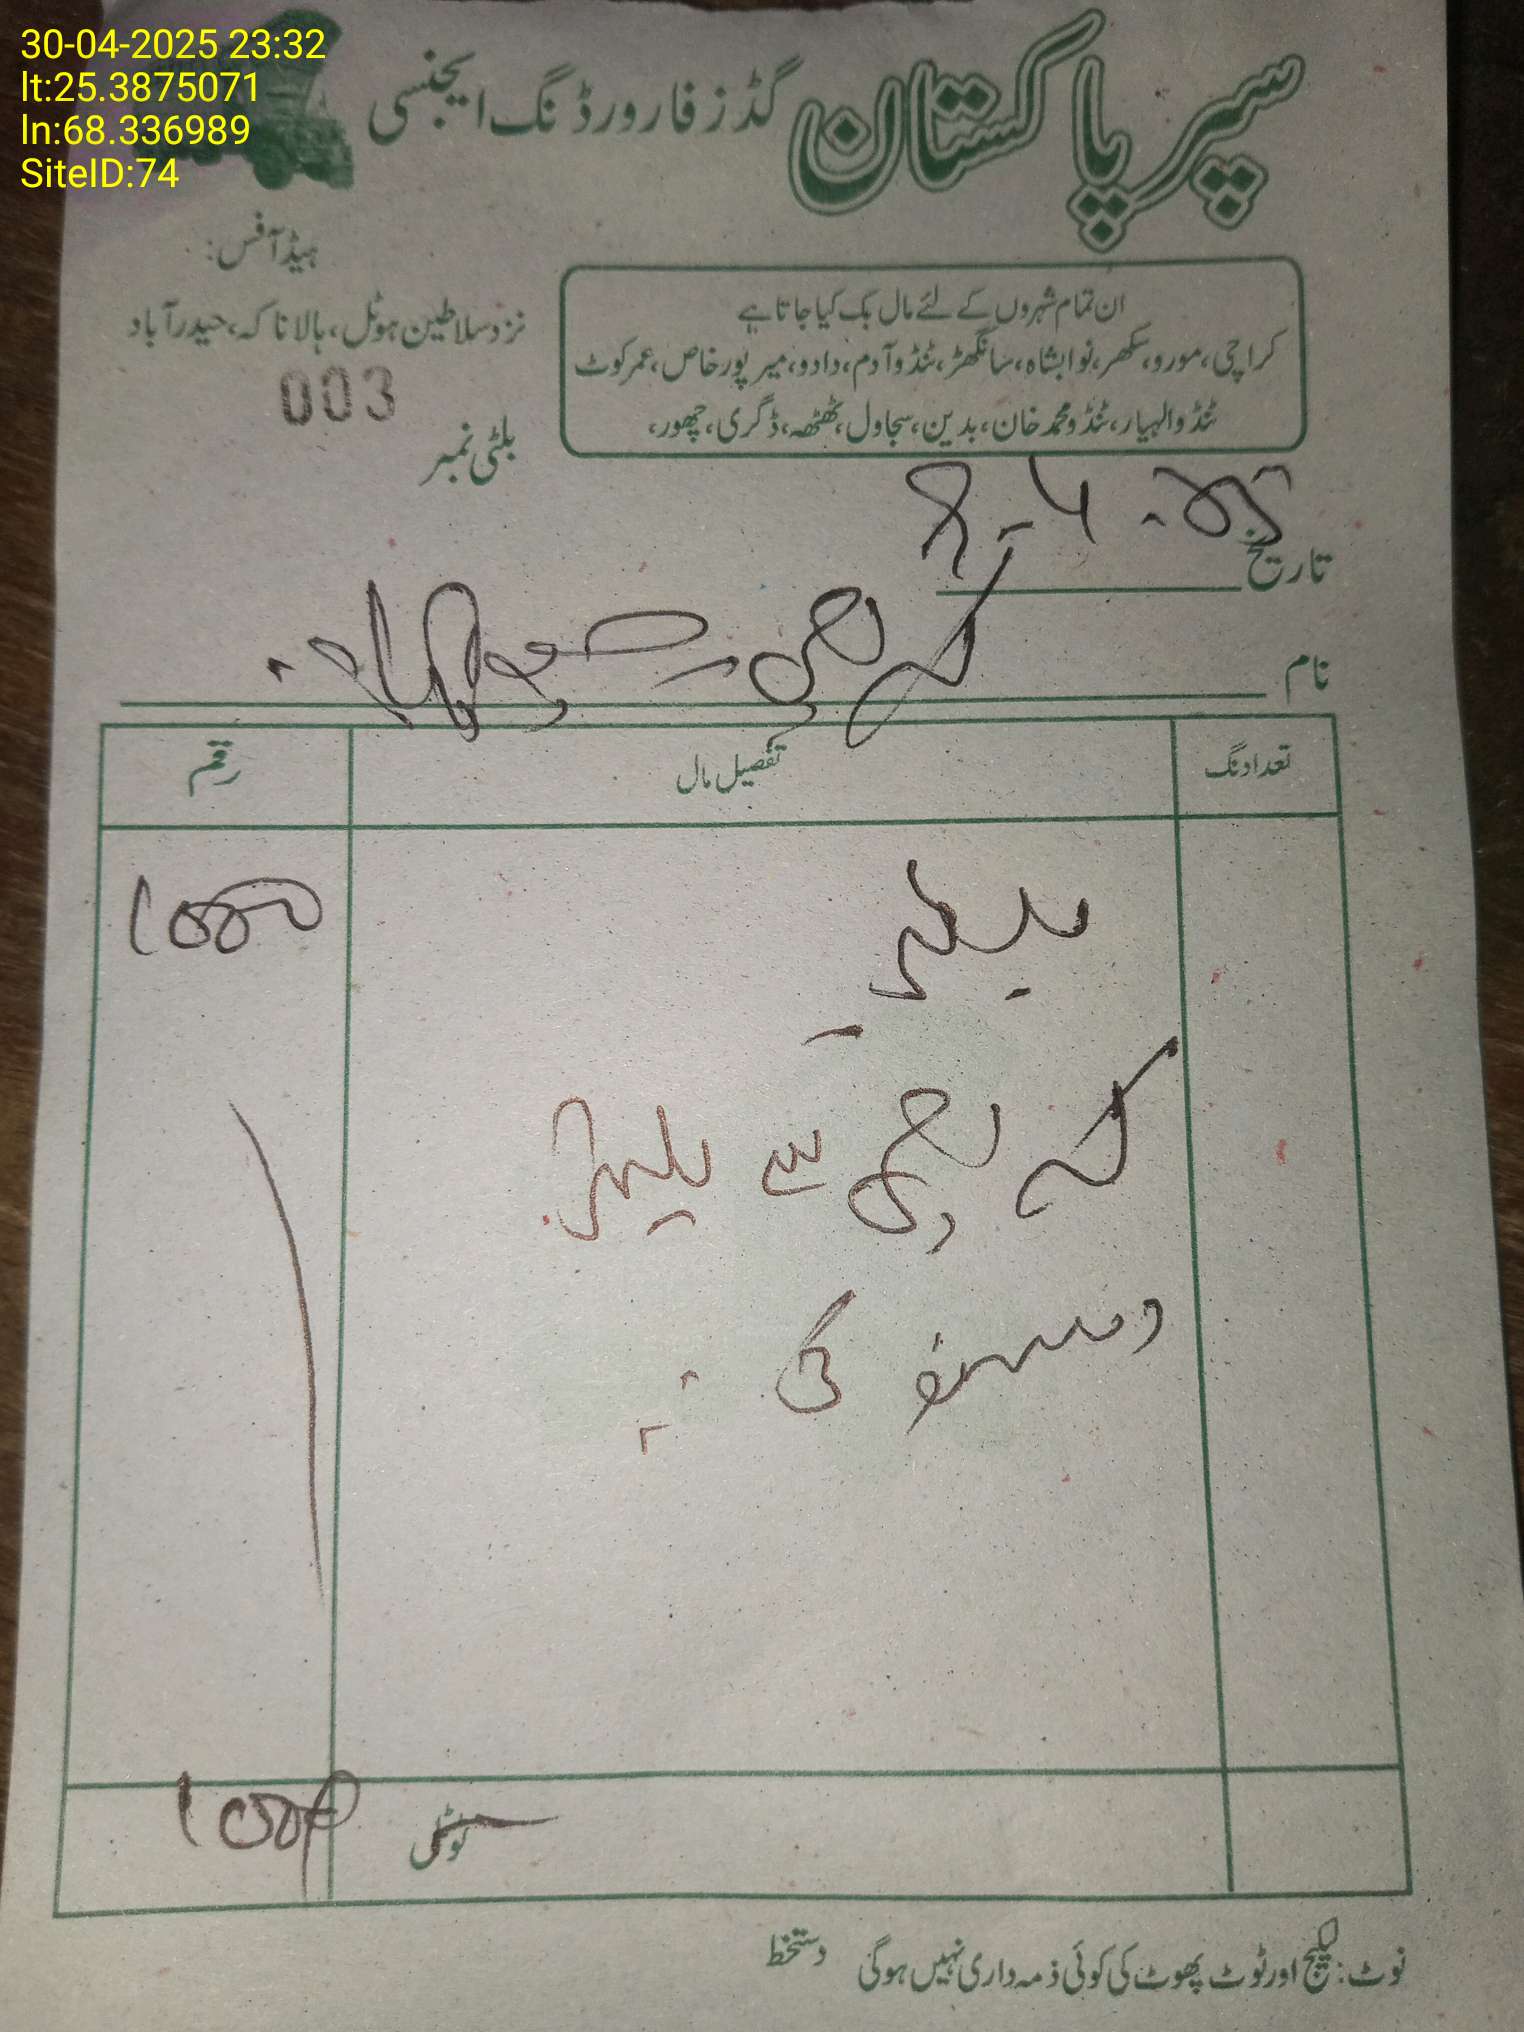 30-04-2025 23:32
lt:25.3875071
ln:68.336989
SiteID:74
سپر پاکستان گڈز فارورڈنگ ایجنسی
ہیڈ آفس:
نزد سلاطین ہوٹل، ہالا ناکہ، حیدرآباد
ان تمام شہروں کے لئے مال بک کیا جاتا ہے
کراچی، مورو، سکھر، نوابشاہ، سانگھڑ، ٹنڈوآدم، دادو، میرپورخاص، عمرکوٹ
ٹنڈوالہیار، ٹنڈومحمدخان، بدین، سجاول، ٹھٹھہ، ڈگری، چھور،
003
بلٹی نمبر
تاریخ
نام کراچی
تعداد نگ تفصیل مال رقم
1000
کراچی سے
کی
ٹوٹل 1000
نوٹ: لیکیج اور ٹوٹ پھوٹ کی کوئی ذمہ داری نہیں ہوگی دستخط